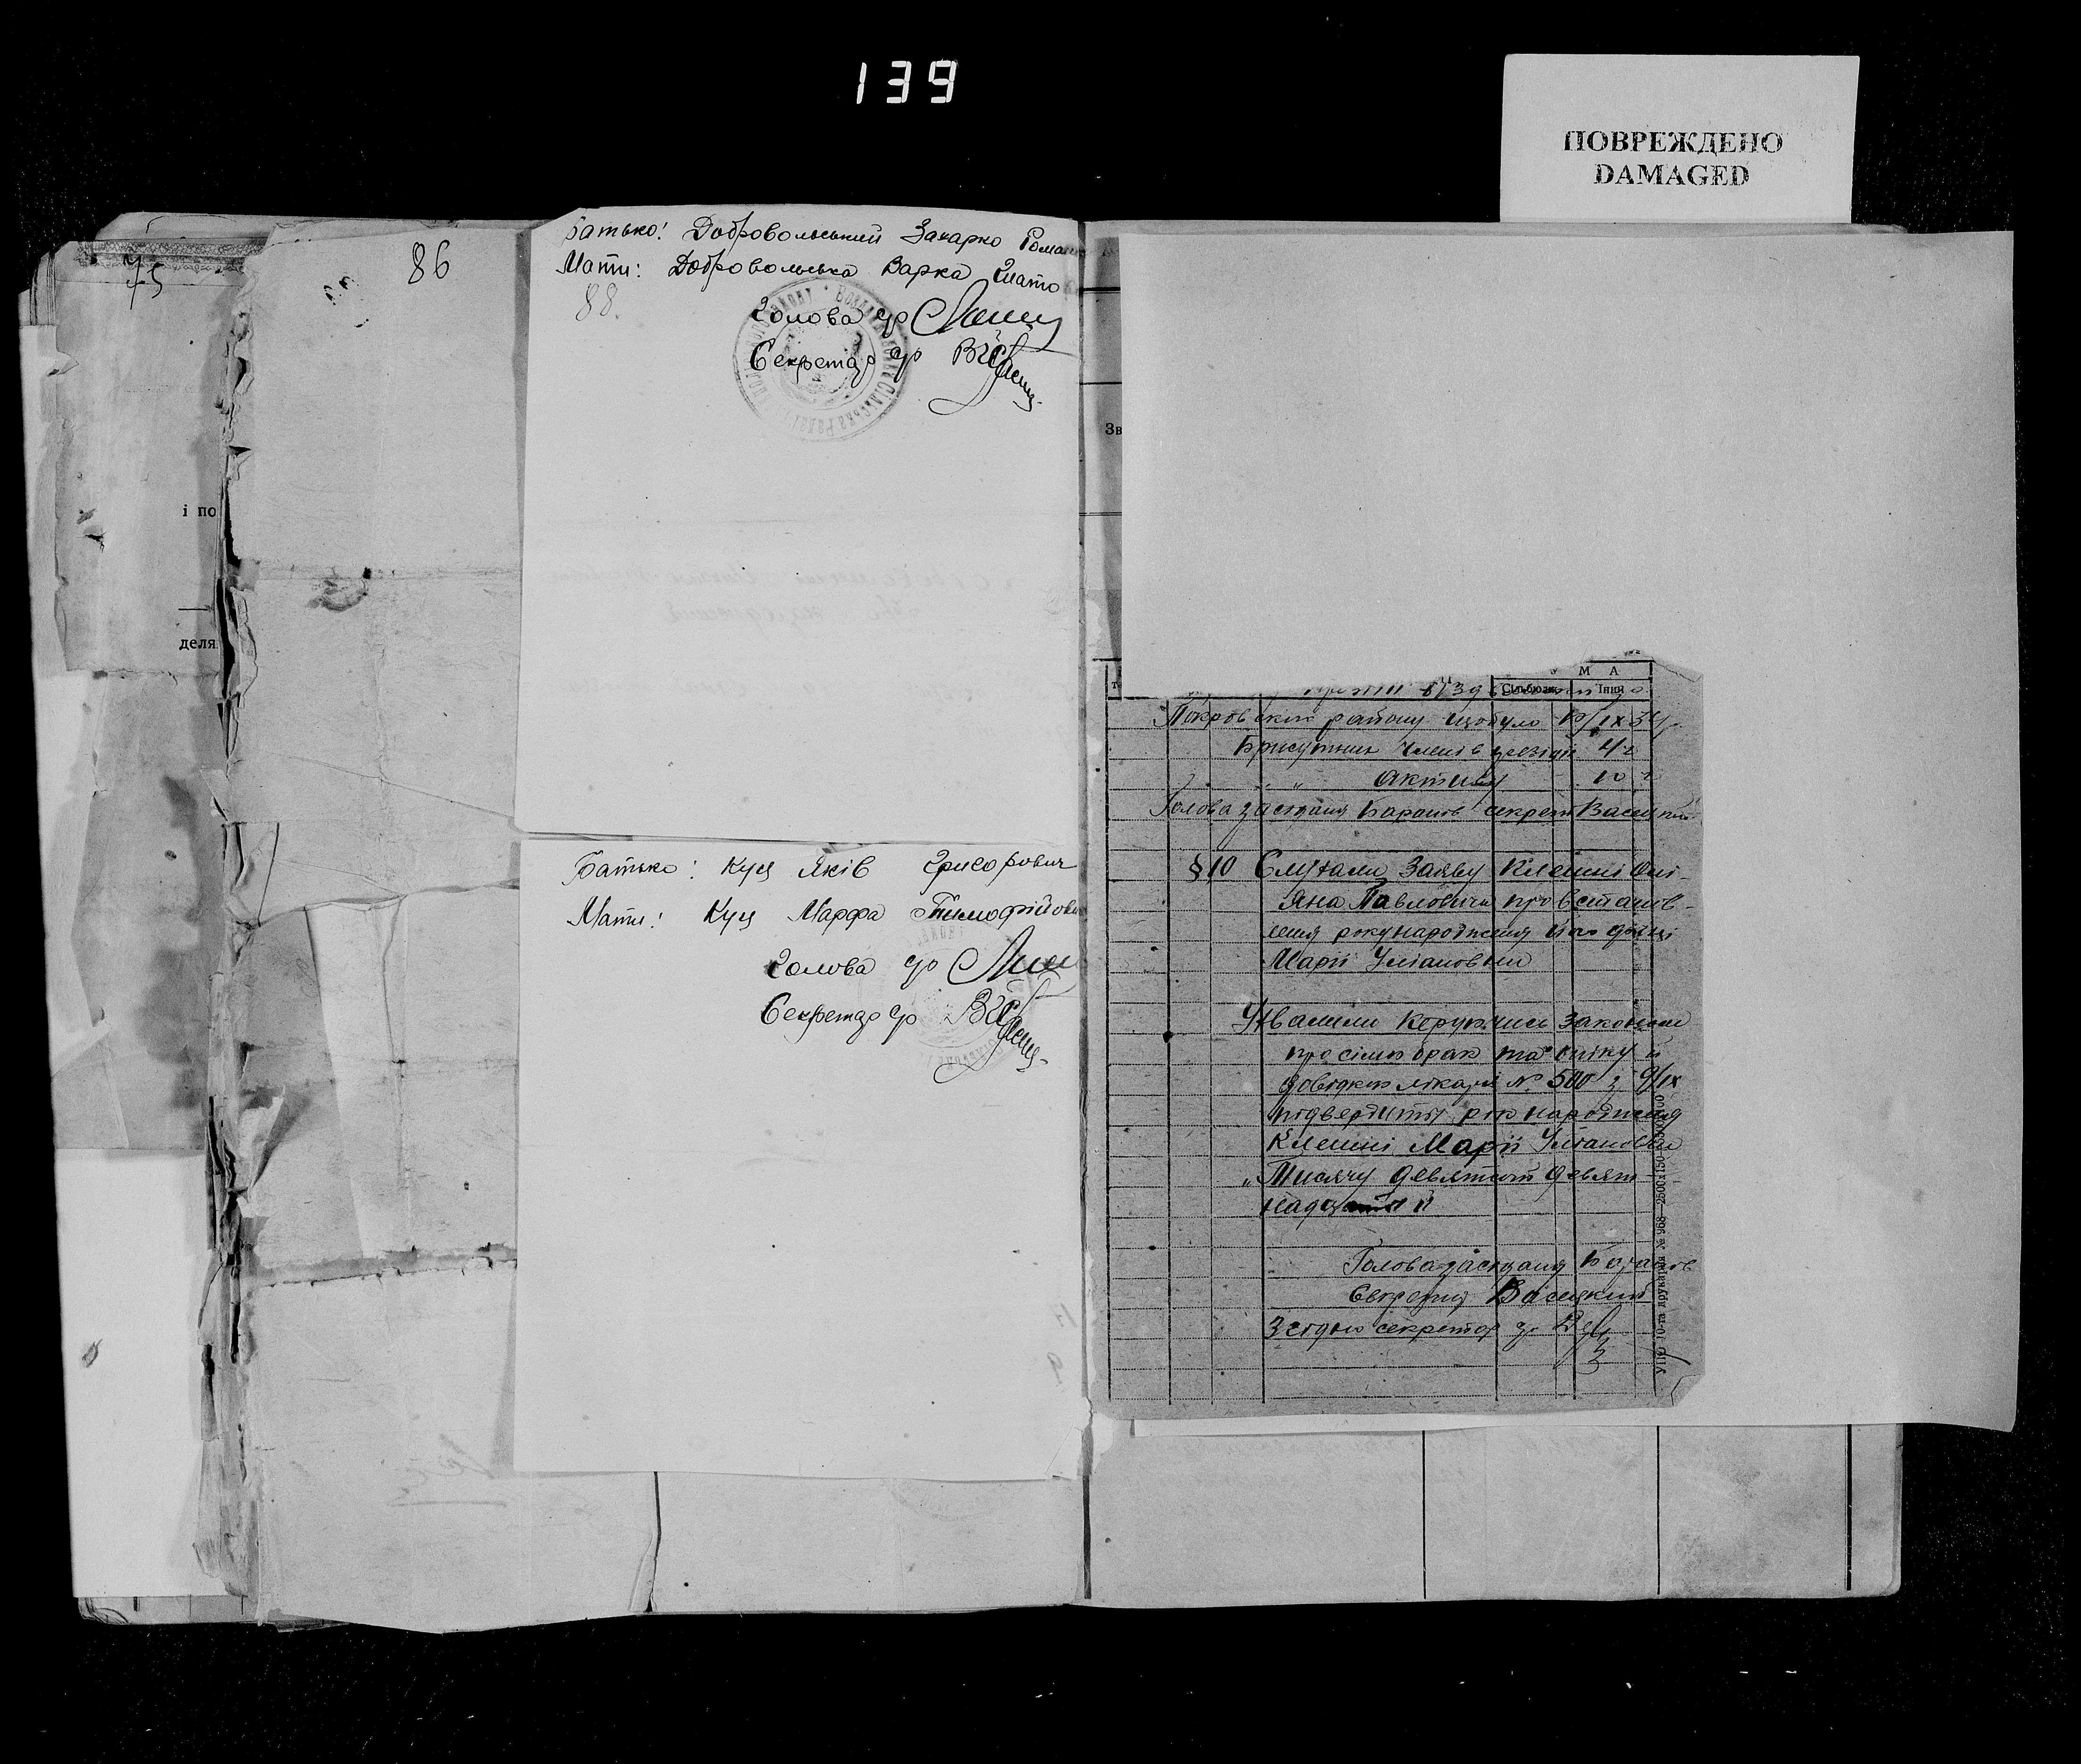 139
ПОВРЕЖДЕНО
DAMAGED
75
і по
деля
86
Батько: Добровольський Захарко Рома
Мати: Добровольська Варка
88.
Голова ср
Секретар ср
Батько: Куц Яків Григорович
Мати: Куц Марфа Тимофійовн
Голова ср
Секретар ср
Зв
М А
Сільбюдж. Інші
Покровськ району що було
Присутних членів 4
активу 10
Голова засідання Баранів секрет
§10 Слухали Заяву Клешні
Яна Павловича про встанов-
лення року народження його
Марії Уляновни
Ухвалили Керуючись законом
про сімю брак та опіку й
довідкою лікаря № 500 з 9/IX
підвердити рік народження
Клешні Марії Улянівни
„Тисячу девятсот девят-
надцятий
Голова засідання Баранів
Секретар Васецкий
Згідно секретар ср
УПП 10-та друкарня № 968—2500×150